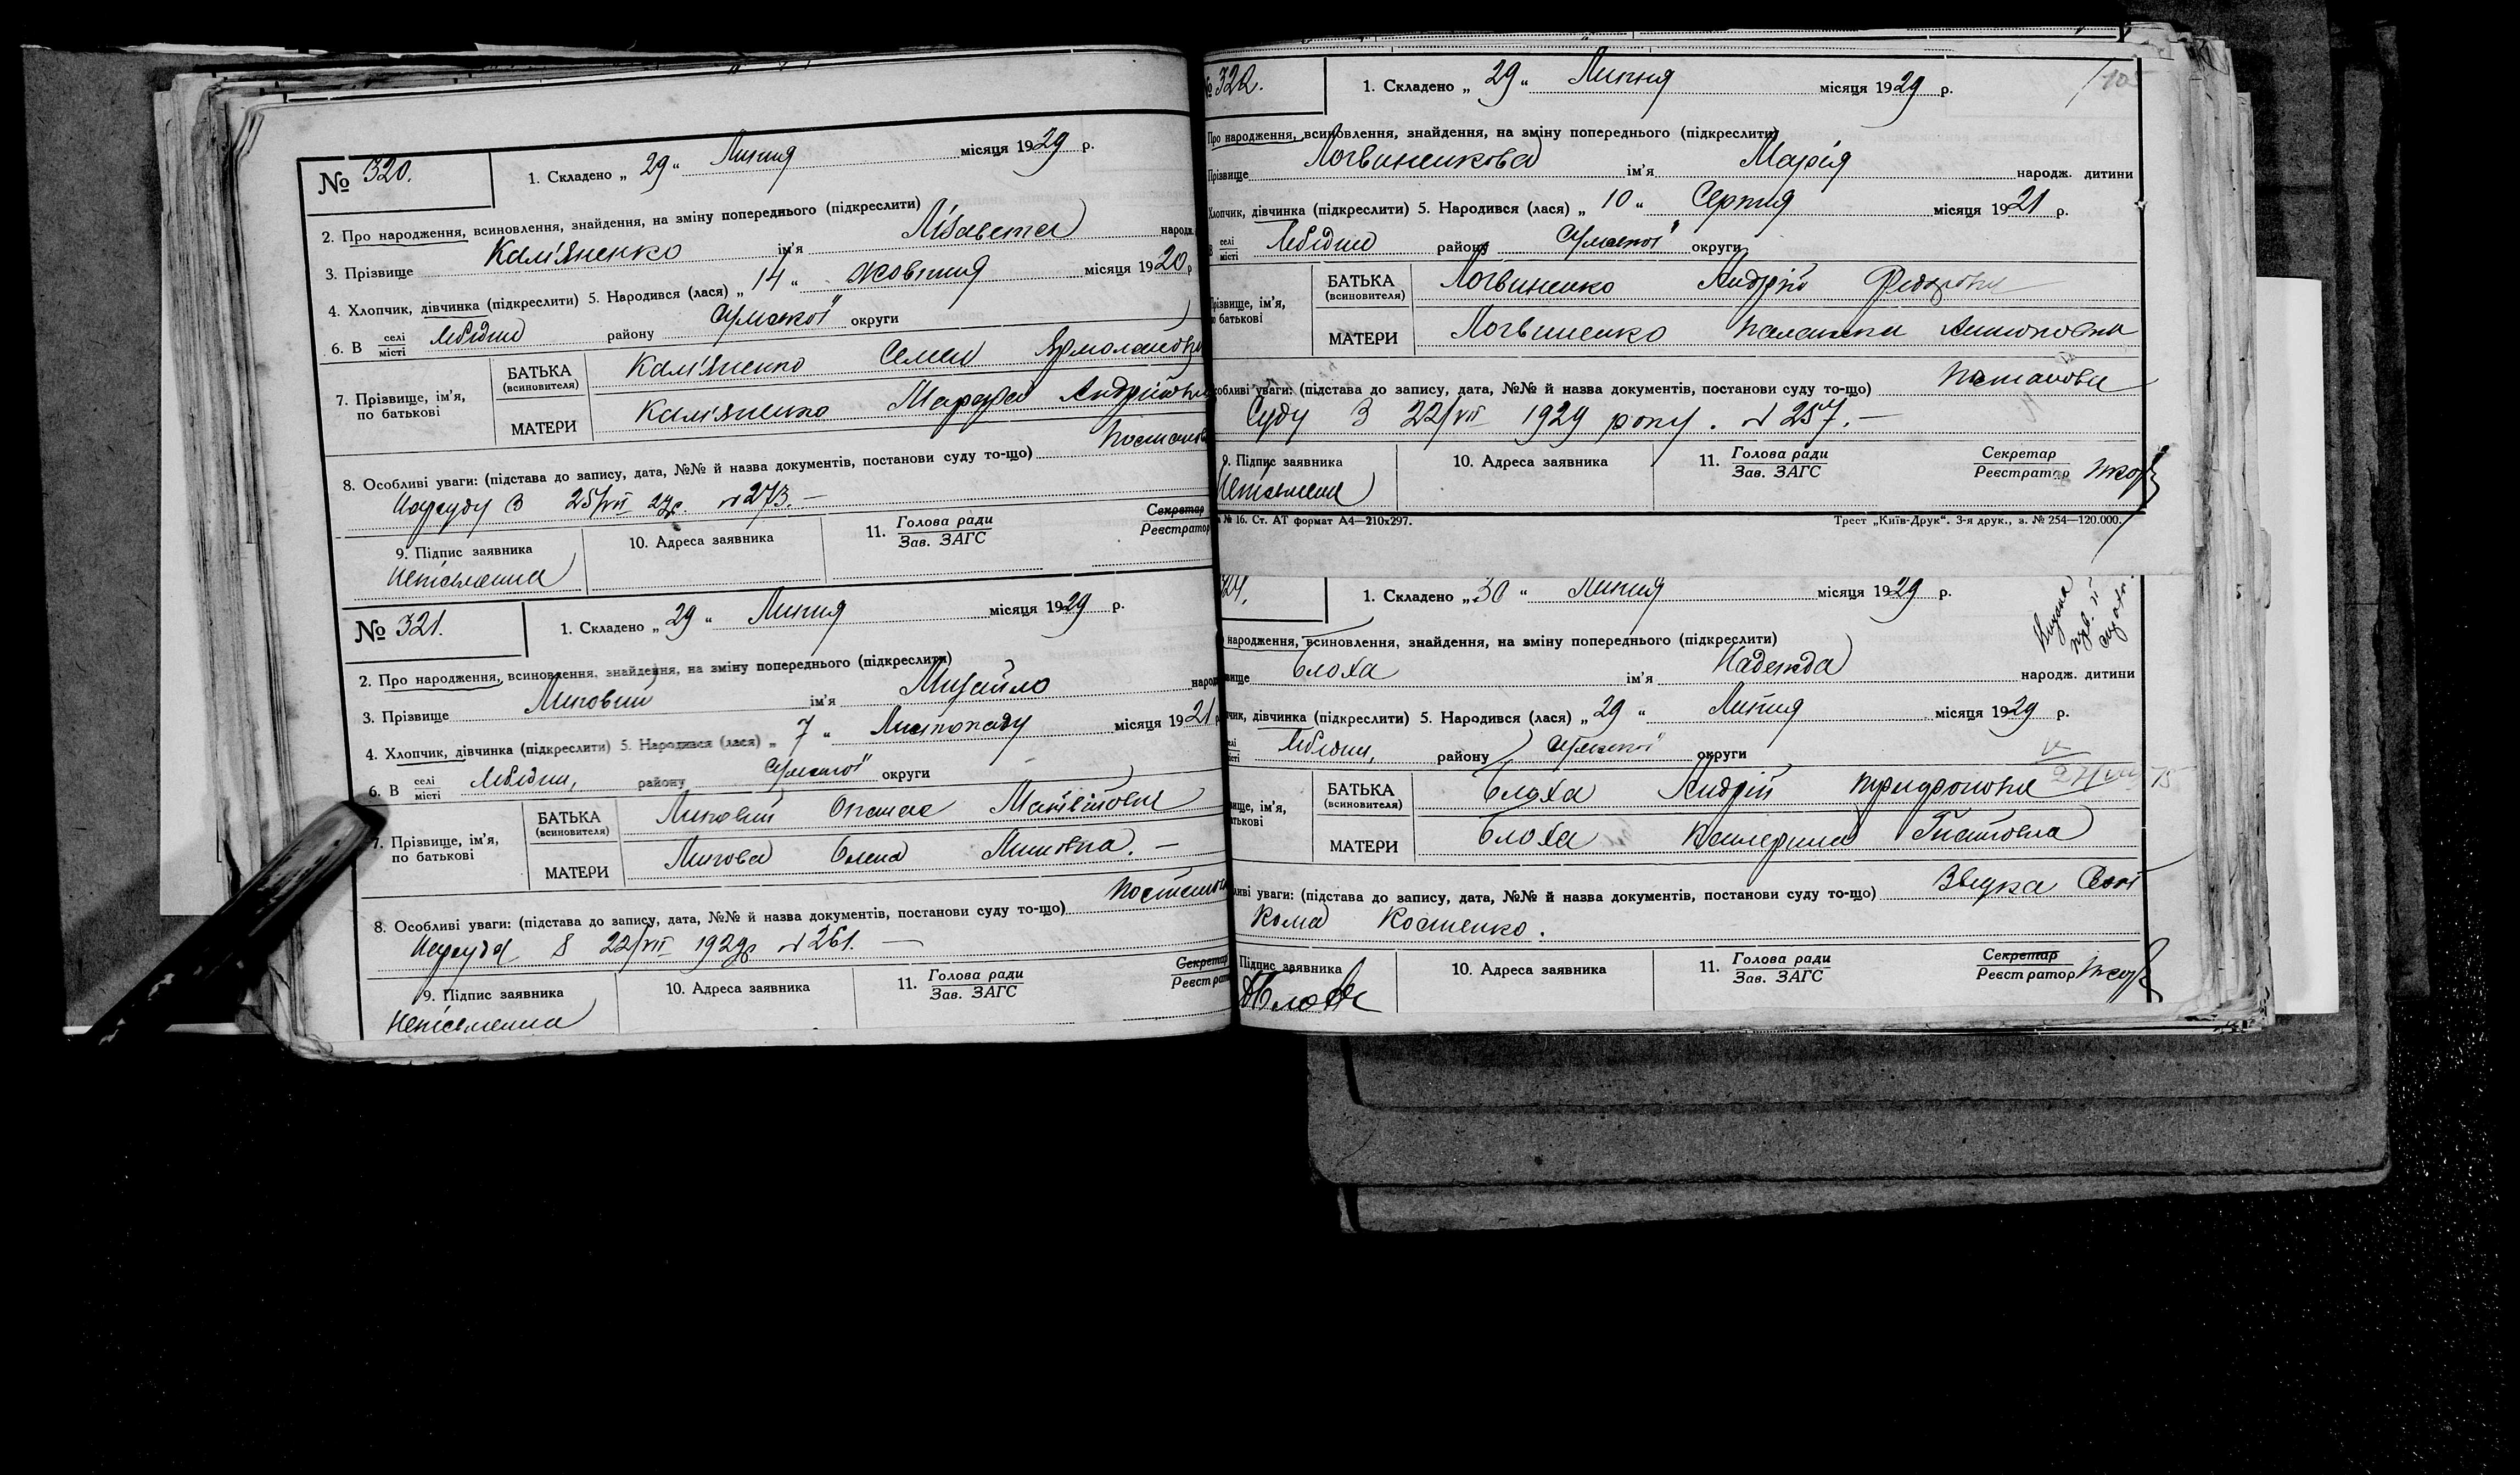 № 320.
1. Складено „ 29 “ Липня місяця 1929 р.
2. Про народження, всиновлення, знайдення, на зміну попереднього (підкреслити)
3. Прізвище Кам'яненко ім'я Лізавета народж.
4. Хлопчик, дівчинка (підкреслити) 5. Народився (лася) „ 14 “ жовтня місяця 1920 р
6. В селі місті Лебедин району Сумської округи
7. Прізвище, ім'я, по батькові
БАТЬКА (всиновителя) Кам'яненко Семен Ярмолайович
МАТЕРИ Кам'яненко Марфа Андріївна
8. Особливі уваги: (підстава до запису, дата, №№ й назва документів, постанови суду то-що) Постанова
Нарсуду З 25/VII 29р. № 273. —
9. Підпис заявника 10. Адреса заявника 11. Голова ради Зав. ЗАГС Секретар Реєстратор
Неписьменна
№ 321.
1. Складено „ 29 “ Липня місяця 1929 р.
2. Про народження, всиновлення, знайдення, на зміну попереднього (підкреслити)
3. Прізвище Липовий ім'я Михайло народ
4. Хлопчик, дівчинка (підкреслити) 5. Народився (лася) „ 7 “ Листопаду місяця 1921 р
6. В селі місті Лебедин, району Сумської округи
7. Прізвище, ім'я, по батькові
БАТЬКА (всиновителя) Липовий Опанас Матвійович
МАТЕРИ Липова Олена
8. Особливі уваги: (підстава до запису, дата, №№ й назва документів, постанови суду то-що) Постанова
Нарсуда 22/VII 1929р № 261. —
9. Підпис заявника 10. Адреса заявника 11. Голова ради Зав. ЗАГС Секретар Реєстратор
Неписьменна
№ 322.
1. Складено „ 29 “ Липня місяця 1929 р.
105
Про народження, всиновлення, знайдення, на зміну попереднього (підкреслити)
Прізвище Логвиненкова ім'я Марія народж. дитини
Хлопчик, дівчинка (підкреслити) 5. Народився (лася) „ 10 “ Серпня місяця 1921 р.
В селі місті Лебедин району Сумської округи
Прізвище, ім'я, по батькові
БАТЬКА (всиновителя) Логвиненко Андрій Федорович
МАТЕРИ Логвиненко Палажка Антоновна
Особливі уваги: (підстава до запису, дата, №№ й назва документів, постанови суду то-що) Постанова
Суду З 22/VII 1929 року. № 257. —
9. Підпис заявника 10. Адреса заявника 11. Голова ради Зав. ЗАГС Секретар Реєстратор
Неписьменна
№ 16. Ст. АТ формат А4—210х297. Трест „Київ-Друк“. 3-я друк., з. № 254—120.000.
324.
1. Складено „ 30 “ Липня місяця 1929 р.
народження, всиновлення, знайдення, на зміну попереднього (підкреслити)
вище Блоха ім'я Надежда народж. дитини
чик, дівчинка (підкреслити) 5. Народився (лася) „ 29 “ Липня місяця 1929 р.
селі місті Лебедин, району Сумської округи
вище, ім'я, батькові
БАТЬКА (всиновителя) Блоха Андрій Трифонович
МАТЕРИ Блоха Катерина Гнатовна
ливі уваги: (підстава до запису, дата, №№ й назва документів, постанови суду то-що)
Костенко.
Підпис заявника 10. Адреса заявника 11. Голова ради Зав. ЗАГС Секретар Реєстратор